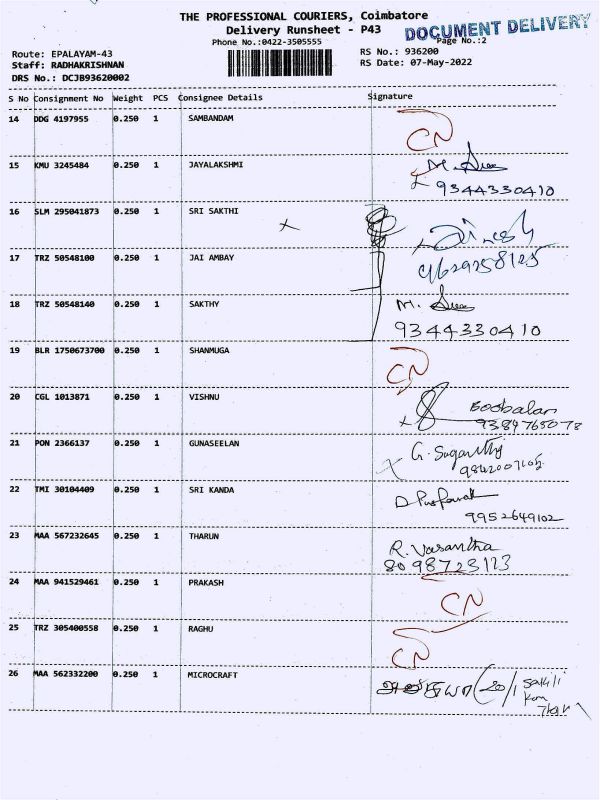 THE PROFESSIONAL COURIERS, Coimbatore
Delivery Runsheet - P43
DOCUMENT DELIVERY
Phone No.:0422-3505555
Page No.:2
Route: EPALAYAM-43
RS No.: 936200
Staff: RADHAKRISHNAN
RS Date: 07-May-2022
DRS No.: DCJB93620002
S No Consignment No Weight PCS Consignee Details Signature
14 DDG 4197955 0.250 1 SAMBANDAM CN
15 KMU 3245484 0.250 1 JAYALAKSHMI M.
9344330410
16 SLM 295041873 0.250 1 SRI SAKTHI
17 TRZ 50548100 0.250 1 JAI AMBAY 9629258125
18 TRZ 50548140 0.250 1 SAKTHY M.
9344330410
19 BLR 1750673700 0.250 1 SHANMUGA CN
20 CGL 1013871 0.250 1 VISHNU Boobalan
9384765073
21 PON 2366137 0.250 1 GUNASEELAN G. Suganthy
22 TMI 30104409 0.250 1 SRI KANDA D
9952649102
23 MAA 567232645 0.250 1 THARUN R. Vasantha
8098723123
24 MAA 941529461 0.250 1 PRAKASH CN
25 TRZ 305400558 0.250 1 RAGHU CN
26 MAA 562332200 0.250 1 MICROCRAFT